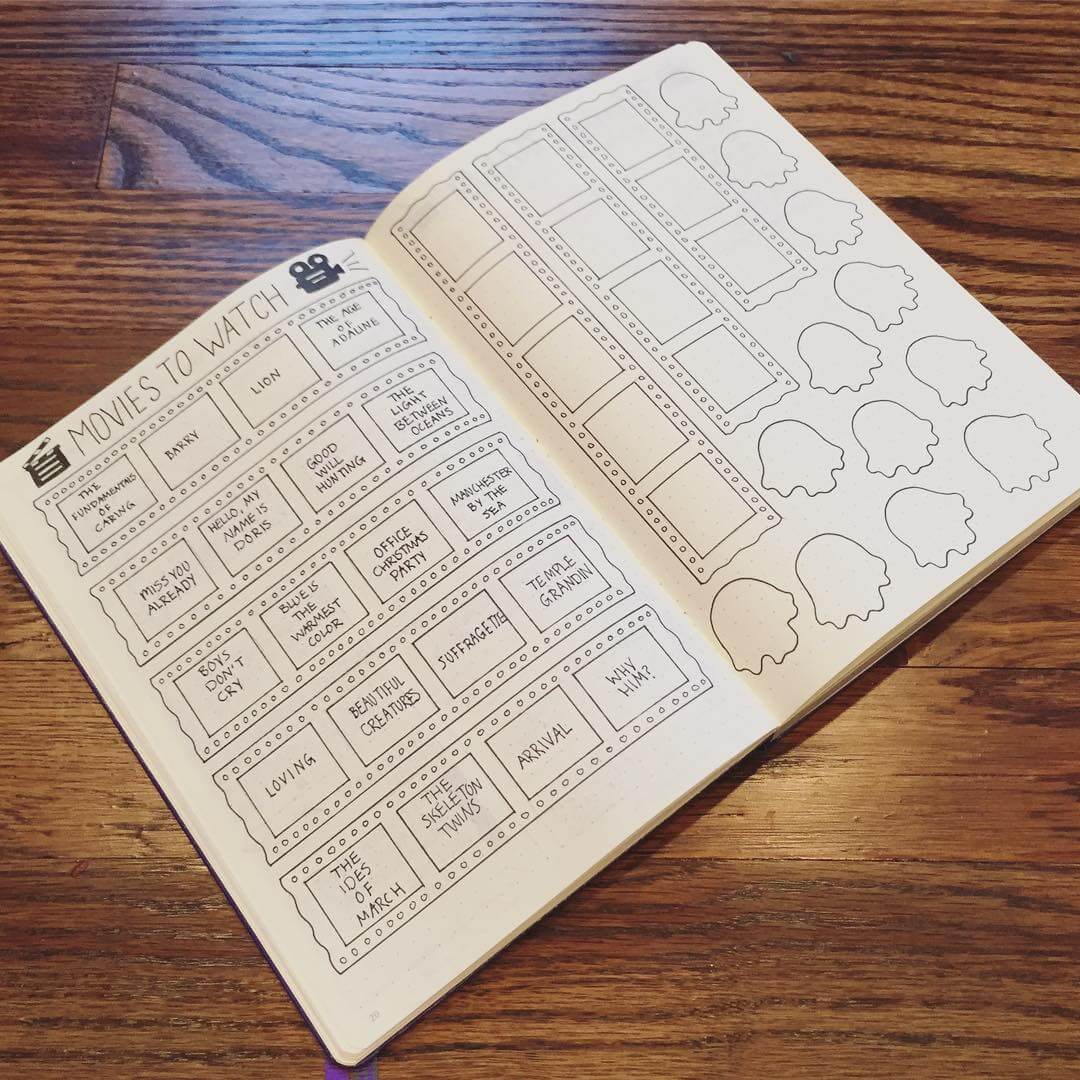 MOVIES TO WATCH
THE
FUNDAMENTALS
OF
CARING
BARRY
LION
THE AGE
OF
ADALINE
MISS YOU
ALREADY
HELLO, MY
NAME IS
DORIS
GOOD
WILL
HUNTING
THE
LIGHT
BETWEEN
OCEANS
BOYS
DON'T
CRY
BLUE IS
THE
WARMEST
COLOR
OFFICE
CHRISTMAS
PARTY
MANCHESTER
BY THE
SEA
LOVING
BEAUTIFUL
CREATURES
SUFFRAGETTE
TEMPLE
GRANDIN
THE
IDES
OF
MARCH
THE
SKELETON
TWINS
ARRIVAL
WHY
HIM?
20